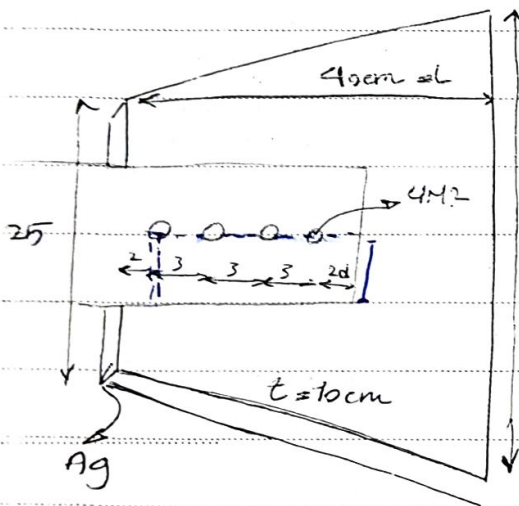 40cm = L
4M12
25
2 3 3 3 2d
t = 10cm
Ag